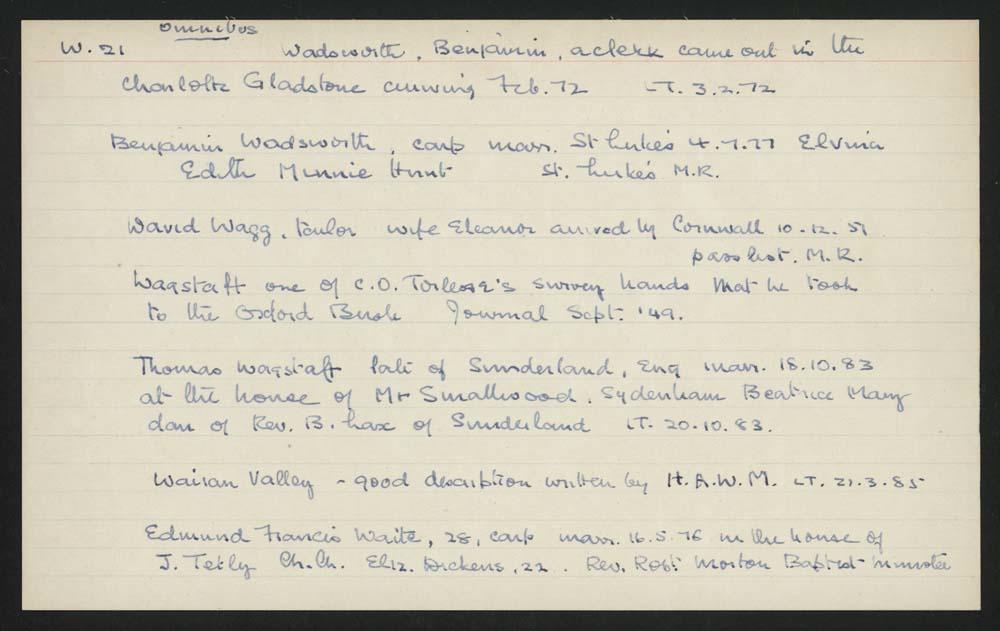 Omnibus
W. 21 Wadsworth, Benjamin, a clerk came out in the
Charlotte Gladstone arriving Feb. 72 LT. 3.2.72
Benjamin Wadsworth, carp marr. St Luke's 4.7.77 Elvina
Edith Minnie Hunt St. Luke's M.R.
David Wagg, tailor wife Eleanor arrived by Cornwall 10.12.51
pass list. M.R.
Wagstaff one of C.O. Torlesse's survey hands that he took
to the Oxford Bush Journal Sept. '49.
Thomas Wagstaff late of Sunderland, Eng marr. 18.10.83
at the house of Mr Smallwood, Sydenham Beatrice Mary
dau of Rev. B. Lax of Sunderland LT. 20.10.83.
Wairau Valley - good description written by H.A.W.M. LT. 21.3.85
Edmund Francis Waite, 28, carp marr. 16.5.76 in the house of
J. Tetly Ch.Ch. Eliz. Dickens, 22. Rev. Robt Morton Baptist minister